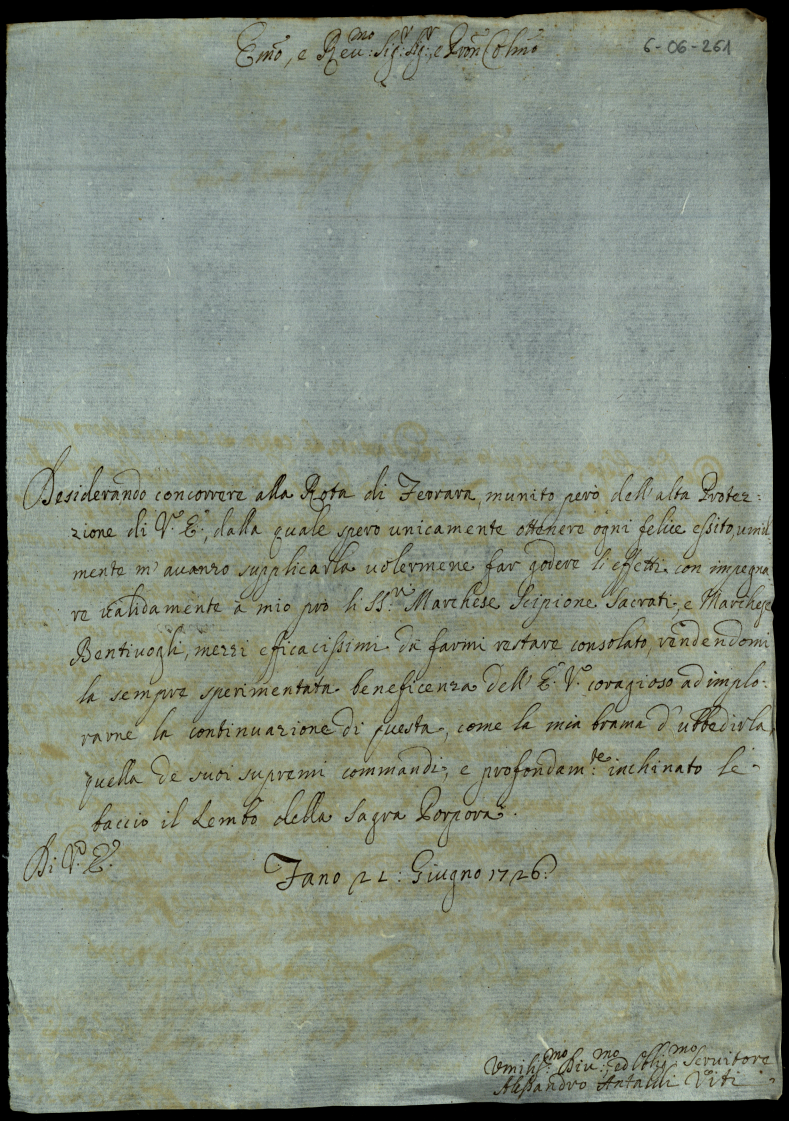 6-06-261
Emo, e Reu:mo Sig:r Sig:r, e Pron Colmo
Desiderando concorrere alla Rota di Ferrara, munito però dell'alta Protez:
zione di V.a E.a, dalla quale spero unicamente ottenere ogni felice essito, umil
mente m'avanzo supplicarla uolermene far godere li effetti con impegna
re ualidamente à mio prò li SS.ri Marchese Scipione Sacrati, e Marchese
Bentiuogli, mezzi efficacissimi dà farmi restare consolato, rendendomi
la sempre sperimentata beneficenza dell'E.a V.a coragioso ad implo:
rarne la continuazione di questa, come la mia brama d'ubbedirla,
quella de suoi supremi commandi, e profondam:te inchinato le
baccio il Lembo della Sagra Porpora.
Di V.a E.a
Fano 21: Giugno 1726:
Vmiliss:mo Diu:mo ed Oblig:mo Seruitore
Alessandro Antaldi Viti